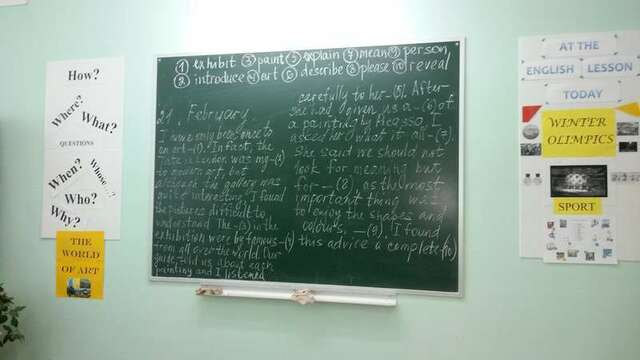 How?
Where?
What?
QUESTIONS
When?
Whose...?
Who?
Why?
THE
WORLD
OF ART
① exhibit ③ paint ⑤ explain ⑦ mean ⑨ person
② introduce ④ art ⑥ describe ⑧ please ⑩ reveal
21, February.
I have only been once to
an art -(1). In fact, the
-(2)
to modern art, but
although the gallery was
quite interesting, I found
the pictures difficult to
understand. The -(3) in the
exhibition were by famous -(4)
from all over the world. Our
guide told us about each
painting and I listened
carefully to her -(5). After
she had given us a -(6) of
a painting by Picasso, I
asked her what it all -(7).
She said we should not
look for meaning but
for -(8), as the most
important thing was
to enjoy the shapes and
colours, -(9). I found
this advice a complete -(10)
AT THE
ENGLISH LESSON
TODAY
WINTER
OLIMPICS
SPORT